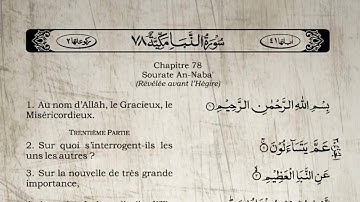 اٰیاتها ٤١ سُوۡرَةُ النَّبَاِ مَكِّيَّةٌ ٧٨ رکوعاتها ٢
Chapitre 78
Sourate An-Naba'
(Révélée avant l'Hégire)
1. Au nom d'Allāh, le Gracieux, le Miséricordieux.
بِسۡمِ اللّٰهِ الرَّحۡمٰنِ الرَّحِيۡمِ ۝
TRENTIÈME PARTIE
2. Sur quoi s'interrogent-ils les uns les autres ?
عَمَّ يَتَسَآءَلُوۡنَ ۝
3. Sur la nouvelle de très grande importance,
عَنِ النَّبَاِ الۡعَظِيۡمِ ۝